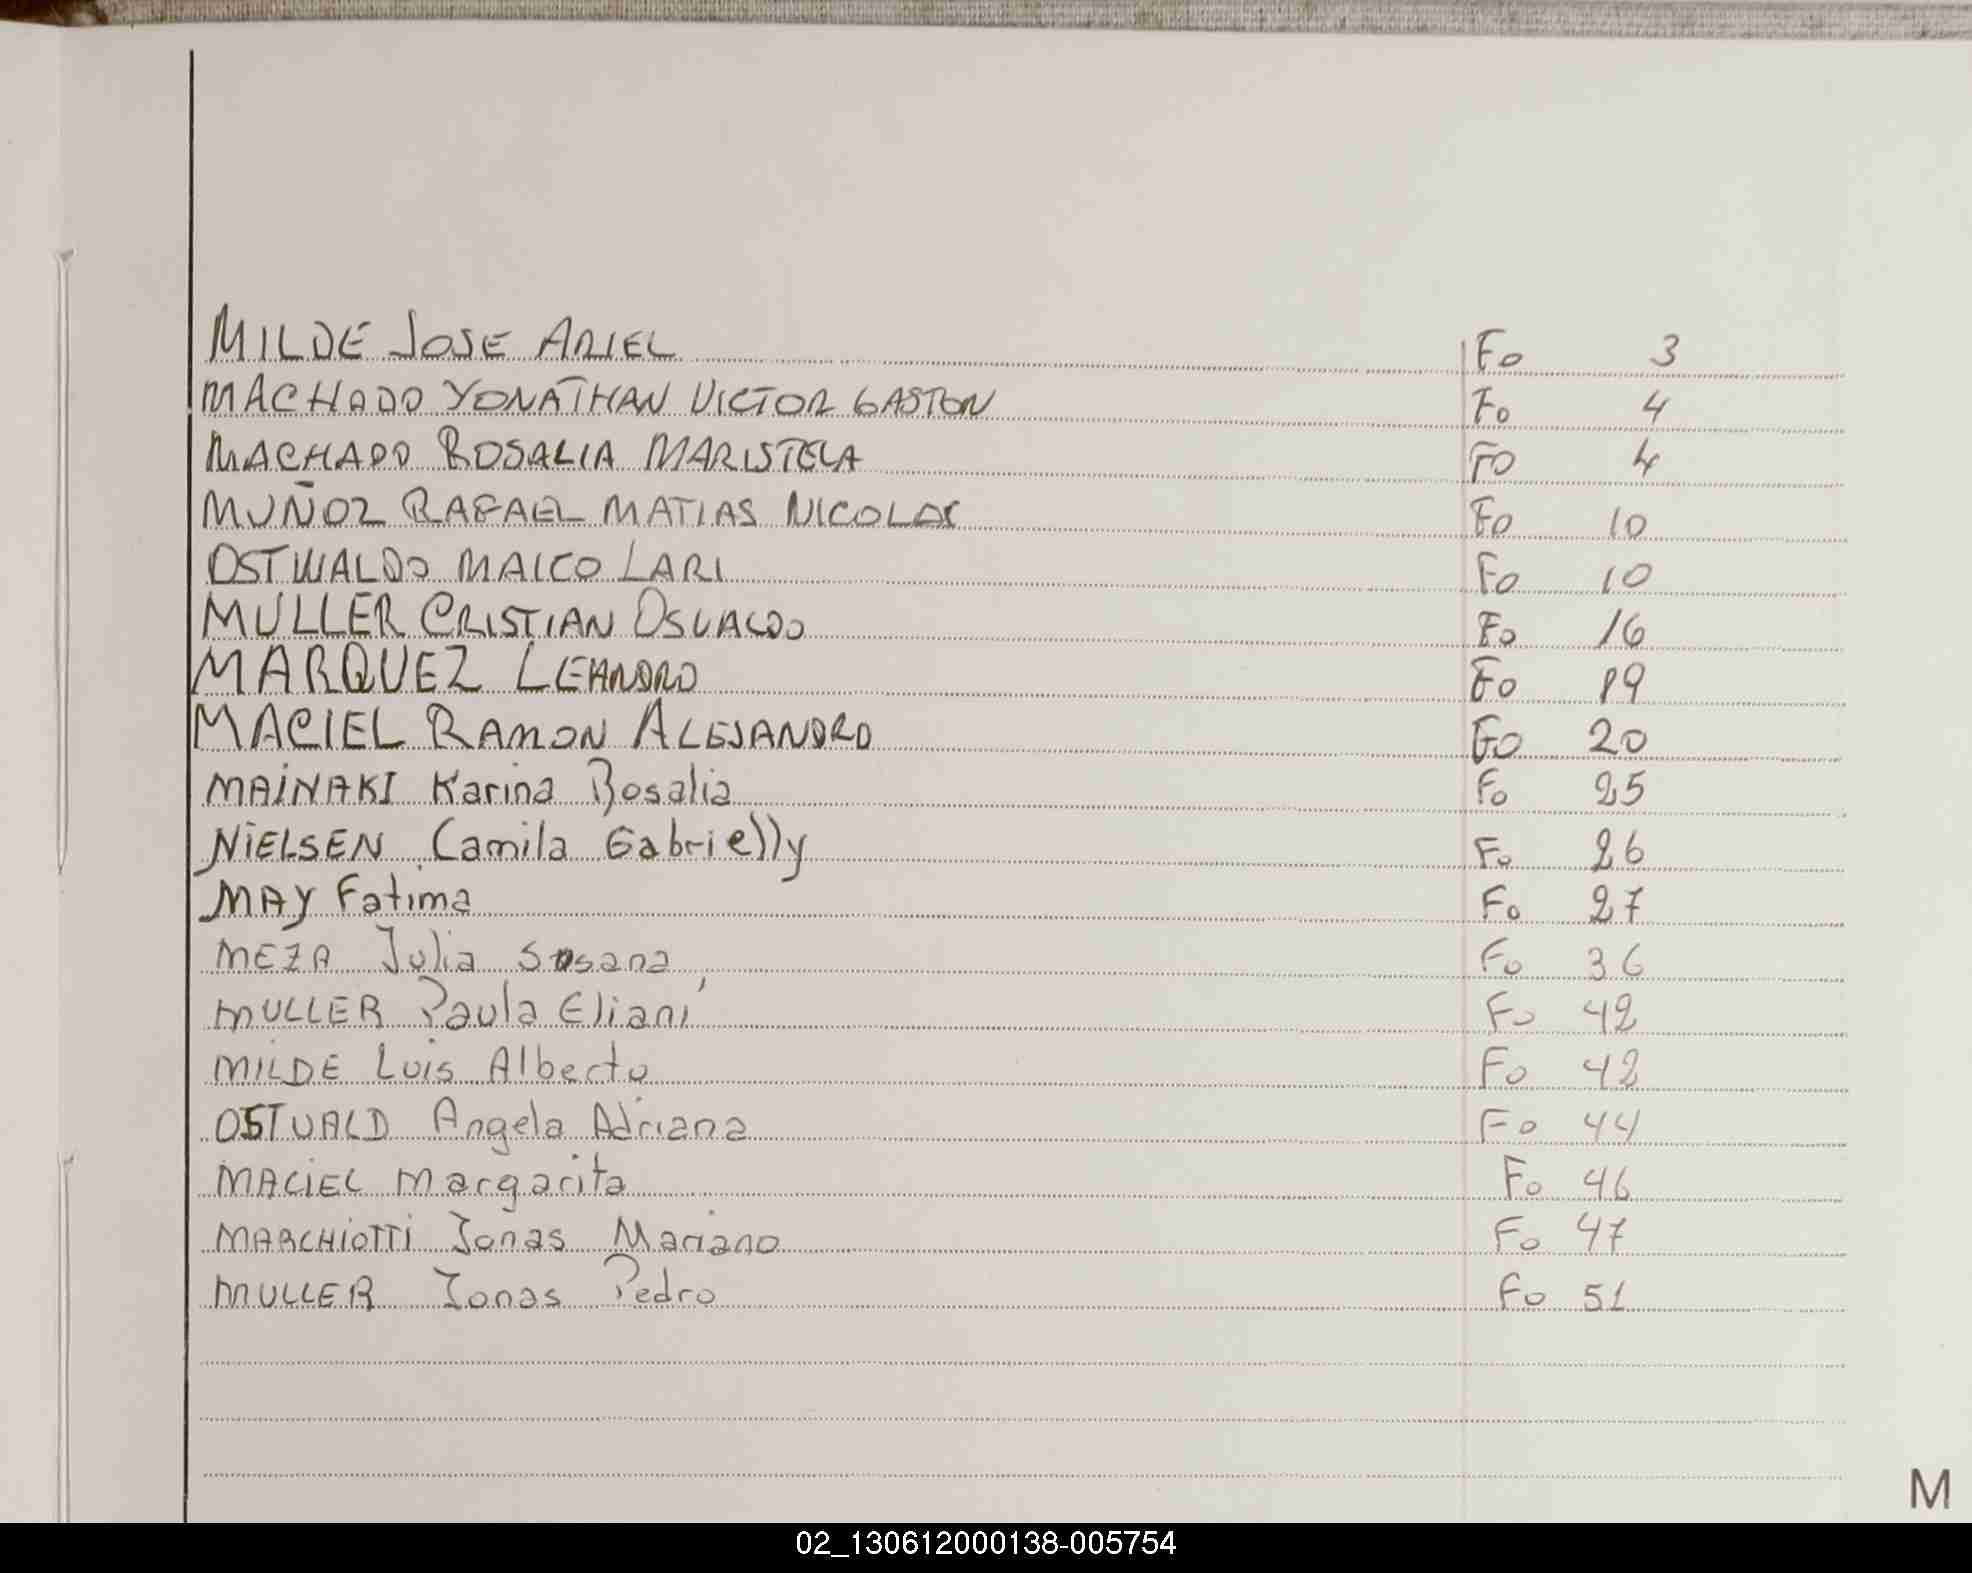 MILDE JOSE ARIEL Fo 3
MACHADO YONATHAN VICTOR GASTON Fo 4
MACHADO ROSALIA MARISTELA FO 4
MUÑOZ RAFAEL MATIAS NICOLAS FO 10
OSTWALDO MAICO LARI Fo 10
MULLER CRISTIAN OSVALDO Fo 16
MARQUEZ LEANDRO Fo 19
MACIEL RAMON ALEJANDRO FO 20
MAINAKI Karina Rosalia Fo 25
NIELSEN Camila Gabrielly Fo 26
MAY Fatima Fo 27
MEZA Julia Susana Fo 36
MULLER Paula Eliani Fo 42
MILDE Luis Alberto Fo 42
OSTUALD Angela Adriana Fo 44
MACIEL Margarita Fo 46
MARCHIOTTI Jonas Mariano Fo 47
MULLER Jonas Pedro Fo 51
M
02_130612000138-005754